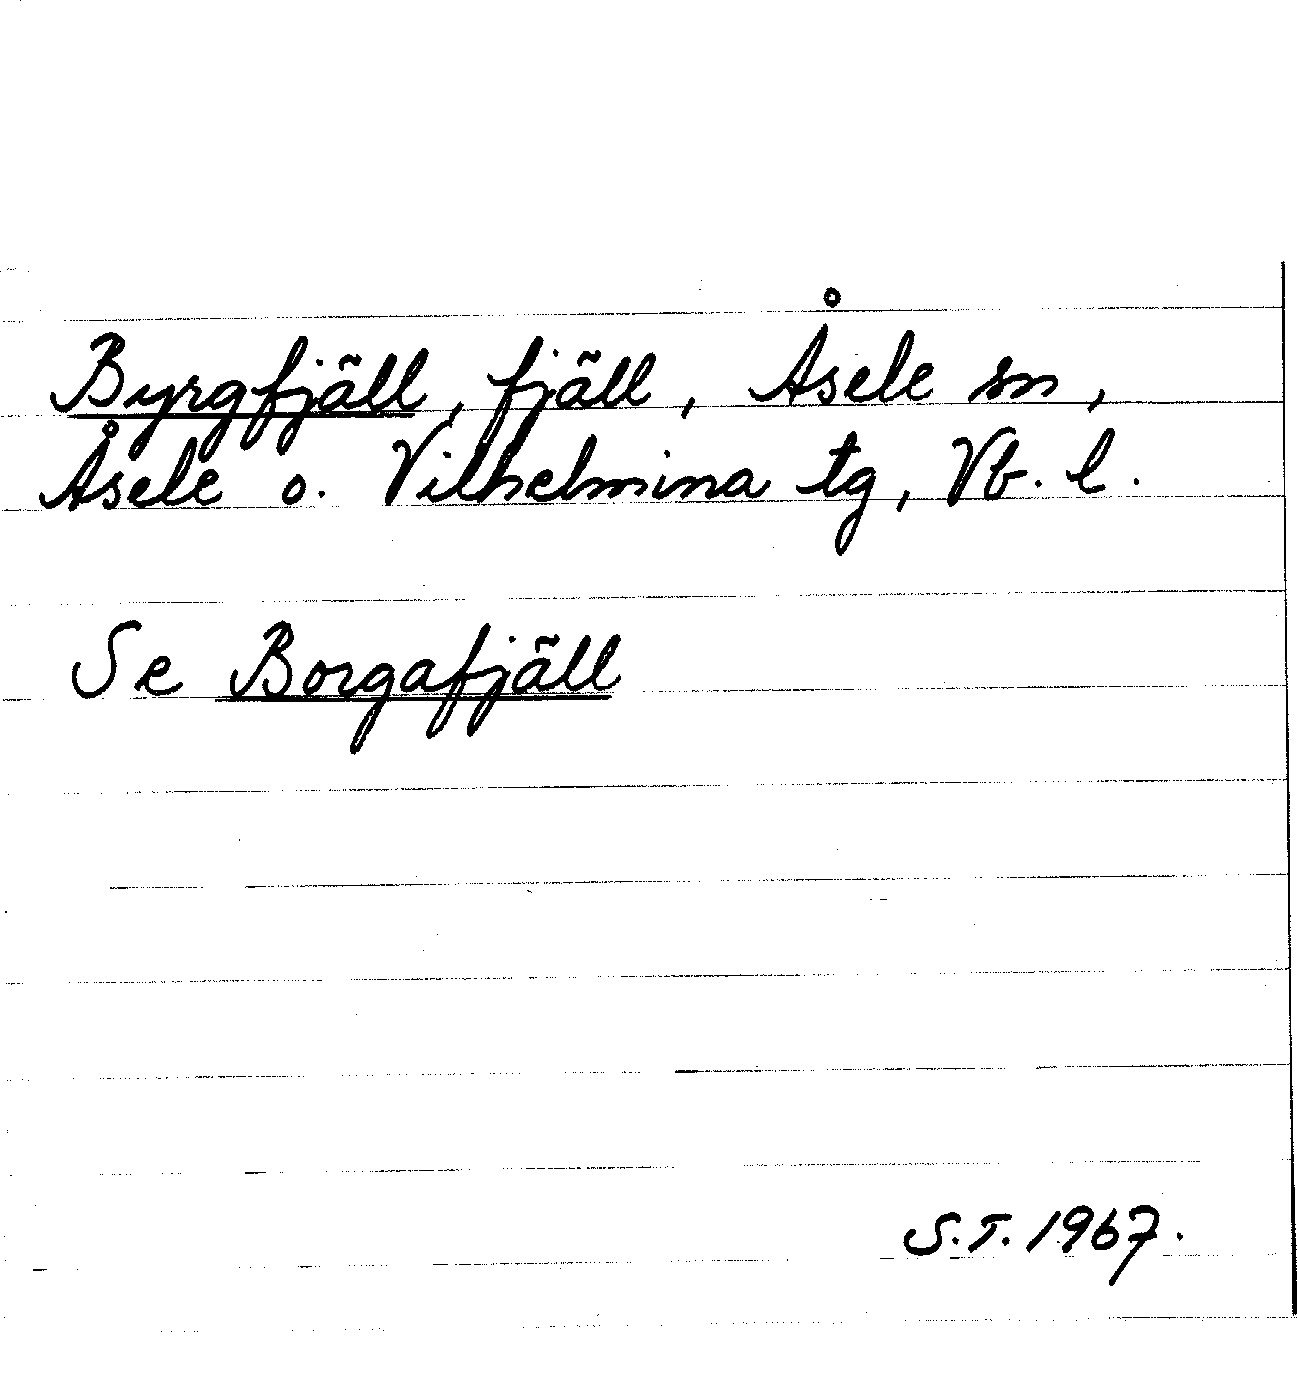 Byrgfjäll, fjäll, Åsele sn,
Åsele o. Vilhelmina tg, Vb. l.
Se Borgafjäll
S.T. 1967.